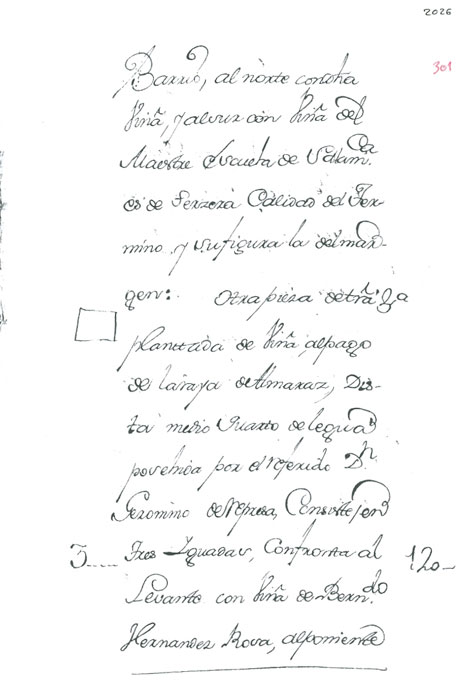 2026
301
Barrio, al norte con otra
Viñã, y al sur con Viñã del
Maestre Escuela de Vallam.ca
es de tercera Calidad del Ter-
mino y su figura la del mar-
gen: Otra pieza de trã. 
planttada de Viñã, al pago
de la raya de Almaraz, Dis-
ta medio Quarto de legua
poveheida por el referido Dn
Geronimo de Represa, Consiste en
3 Tres Yguadas, Confronta al 120
Levante con Viñã de Bern.do
Hernandez Roxa, al poniente